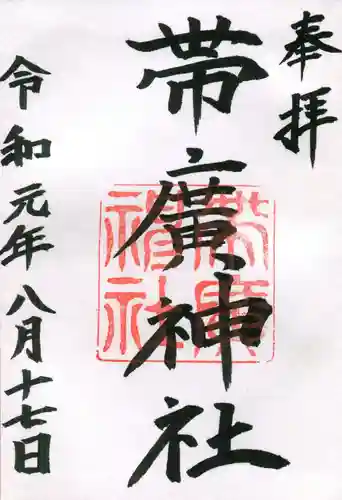 奉拝
帯廣神社
帯廣
神社
令和元年八月十七日